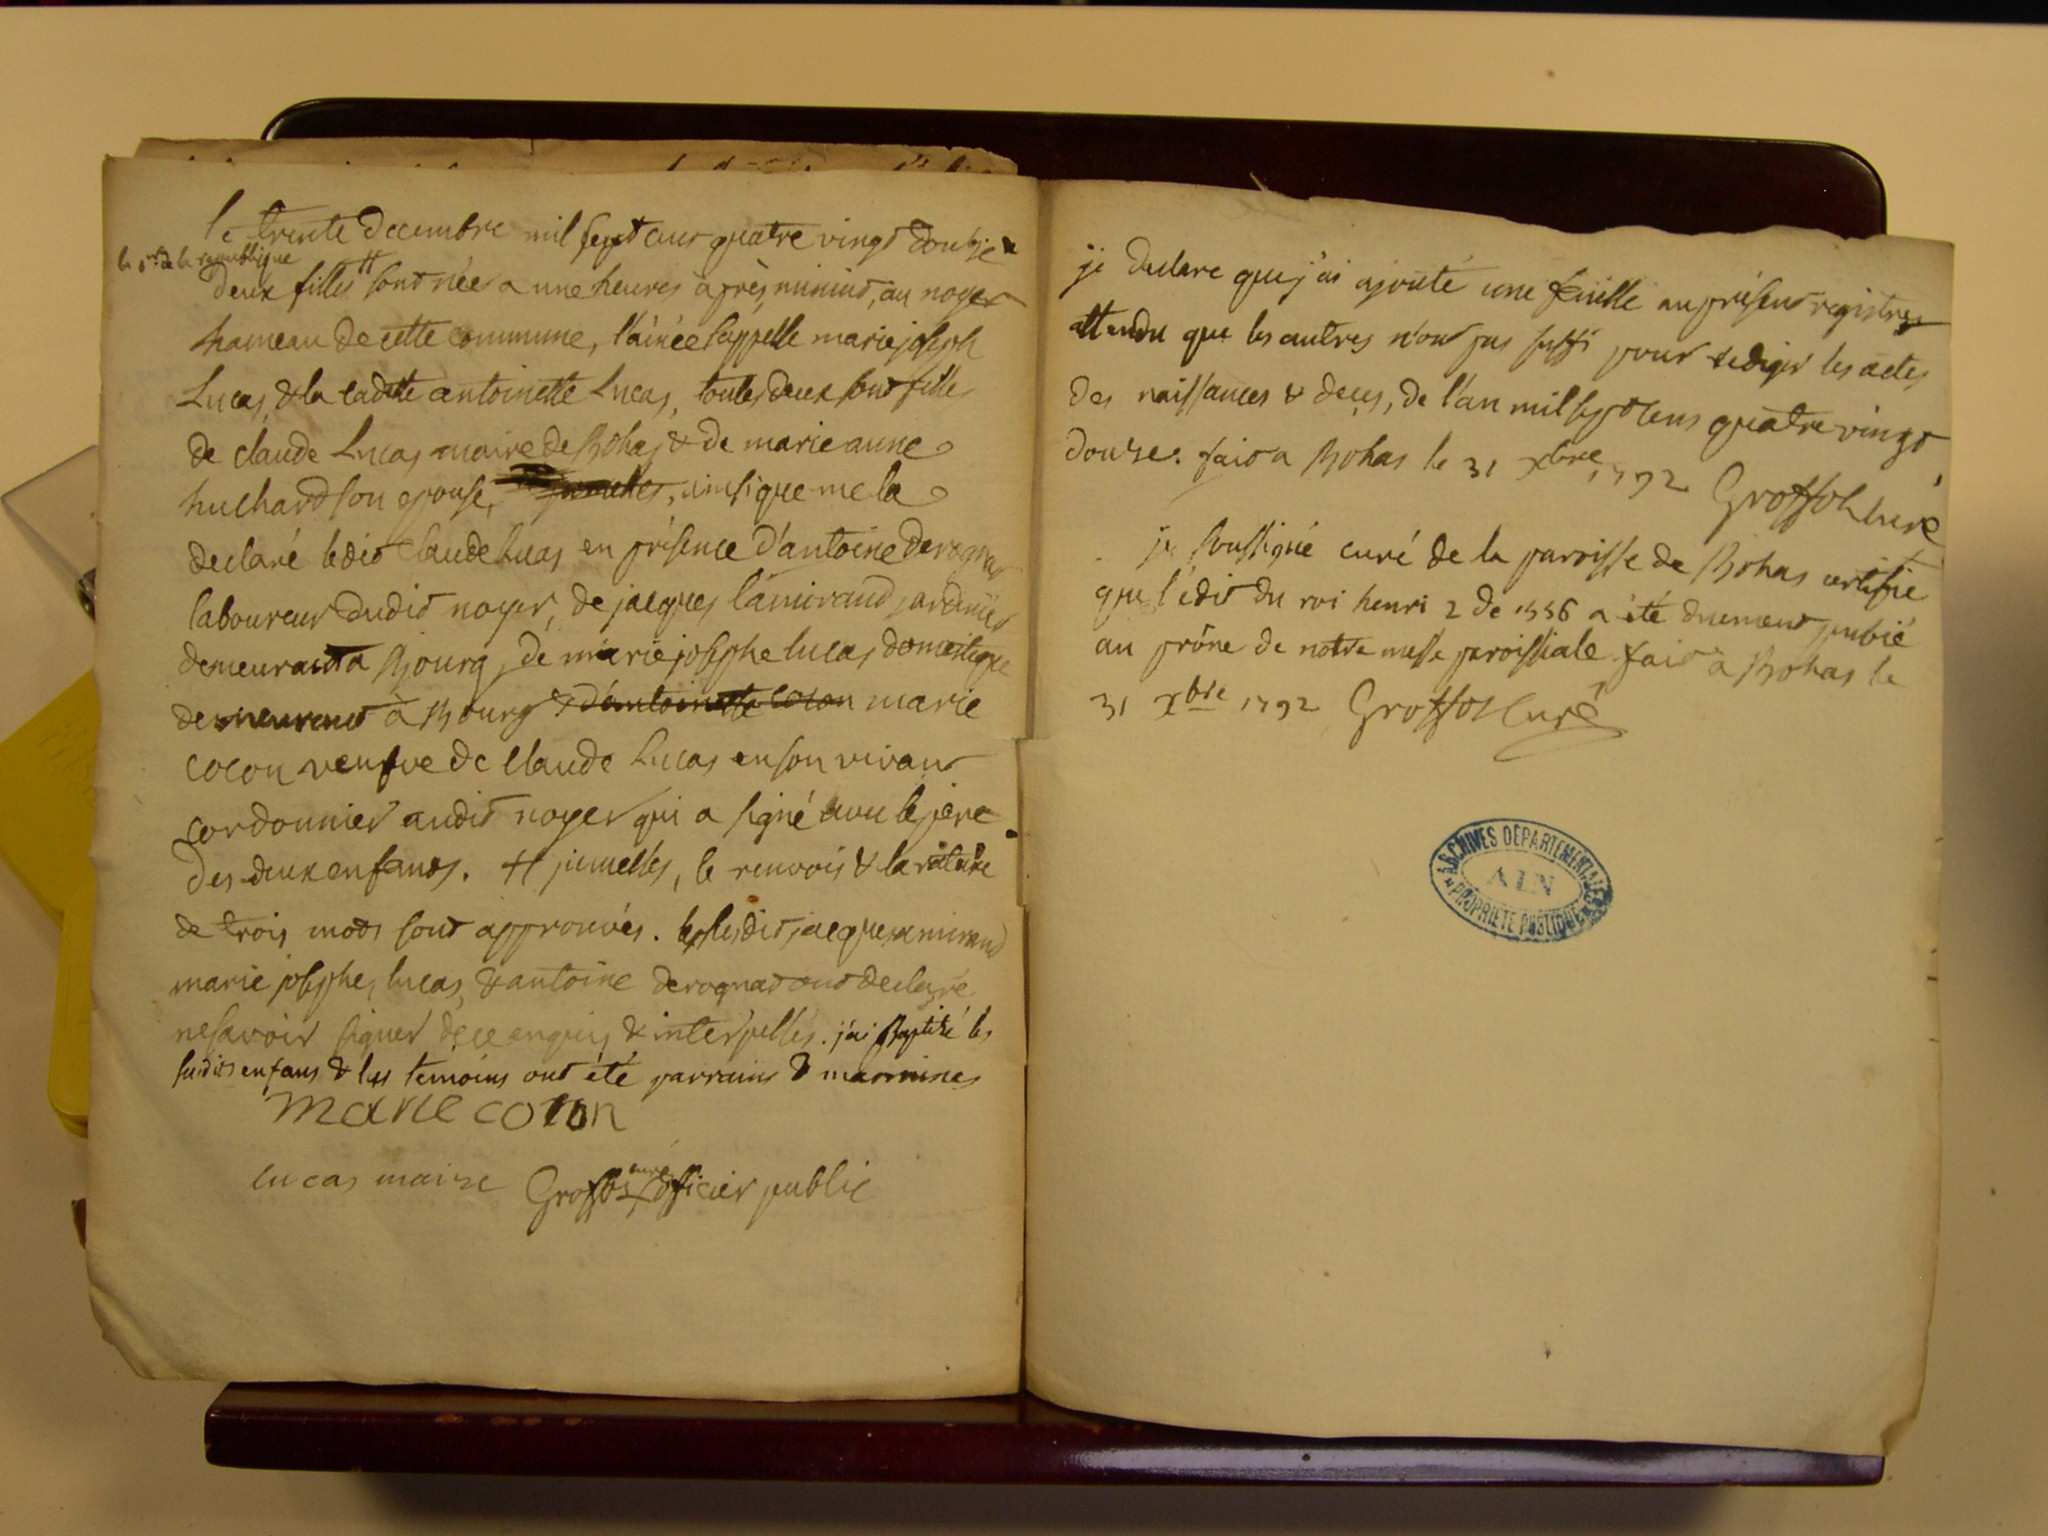 le trente decembre mil sept cens quatre vingt douze &
la 1ere de la republique
deux filles # sont nées a une heures après minuit, au noyer
hameau de cette commune, l'ainée s'appelle marie joseph
Lucas, & la cadette antoinette Lucas, toutes deux sont filles
de claude Lucas maire de Bohas & de marie anne
huchard son epouse, jumelles, ainsi que me la
declaré ledit Claude Lucas en présence d'antoine derognat
laboureur dudit noyer, de jacques lamiraud jardinier
demeurant a Bourg, de marie josephe lucas domestique
demeurant à Bourg & d'antoinette cocon marie
cocon veufve de Claude Lucas en son vivant
cordonnier audit noyer qui a signé avec le père
des deux enfans. # jumelles, le renvois & la rature
de trois mots sont approuvés. lesdits jacques lamiraud
marie josephe lucas, & antoine derognat ont declaré
ne savoir signer de ce enquis & interpellés. j'ai Baptisé les
susdits enfans & les temoins ont été parrains & marraines
marie cocon
lucas maire Grossot curé officier public
je declare que j'ai ajouté une feuille au présent registre
attendu que les autres n'ont pas suffi pour rediger les actes
des naissances & deces, de l'an mil sept cens quatre vingt
douze. fait a Bohas le 31 Xbre 1792 Grossot curé
je soussigné curé de la paroisse de Bohas certifie
que l'édit du roi henri 2 de 1556 a été duement publié
au prône de notre messe paroissiale fait à Bohas le
31 Xbre 1792 Grossot Curé
ARCHIVES DÉPARTEMENTALES
AIN
PROPRIÉTÉ PUBLIQUE